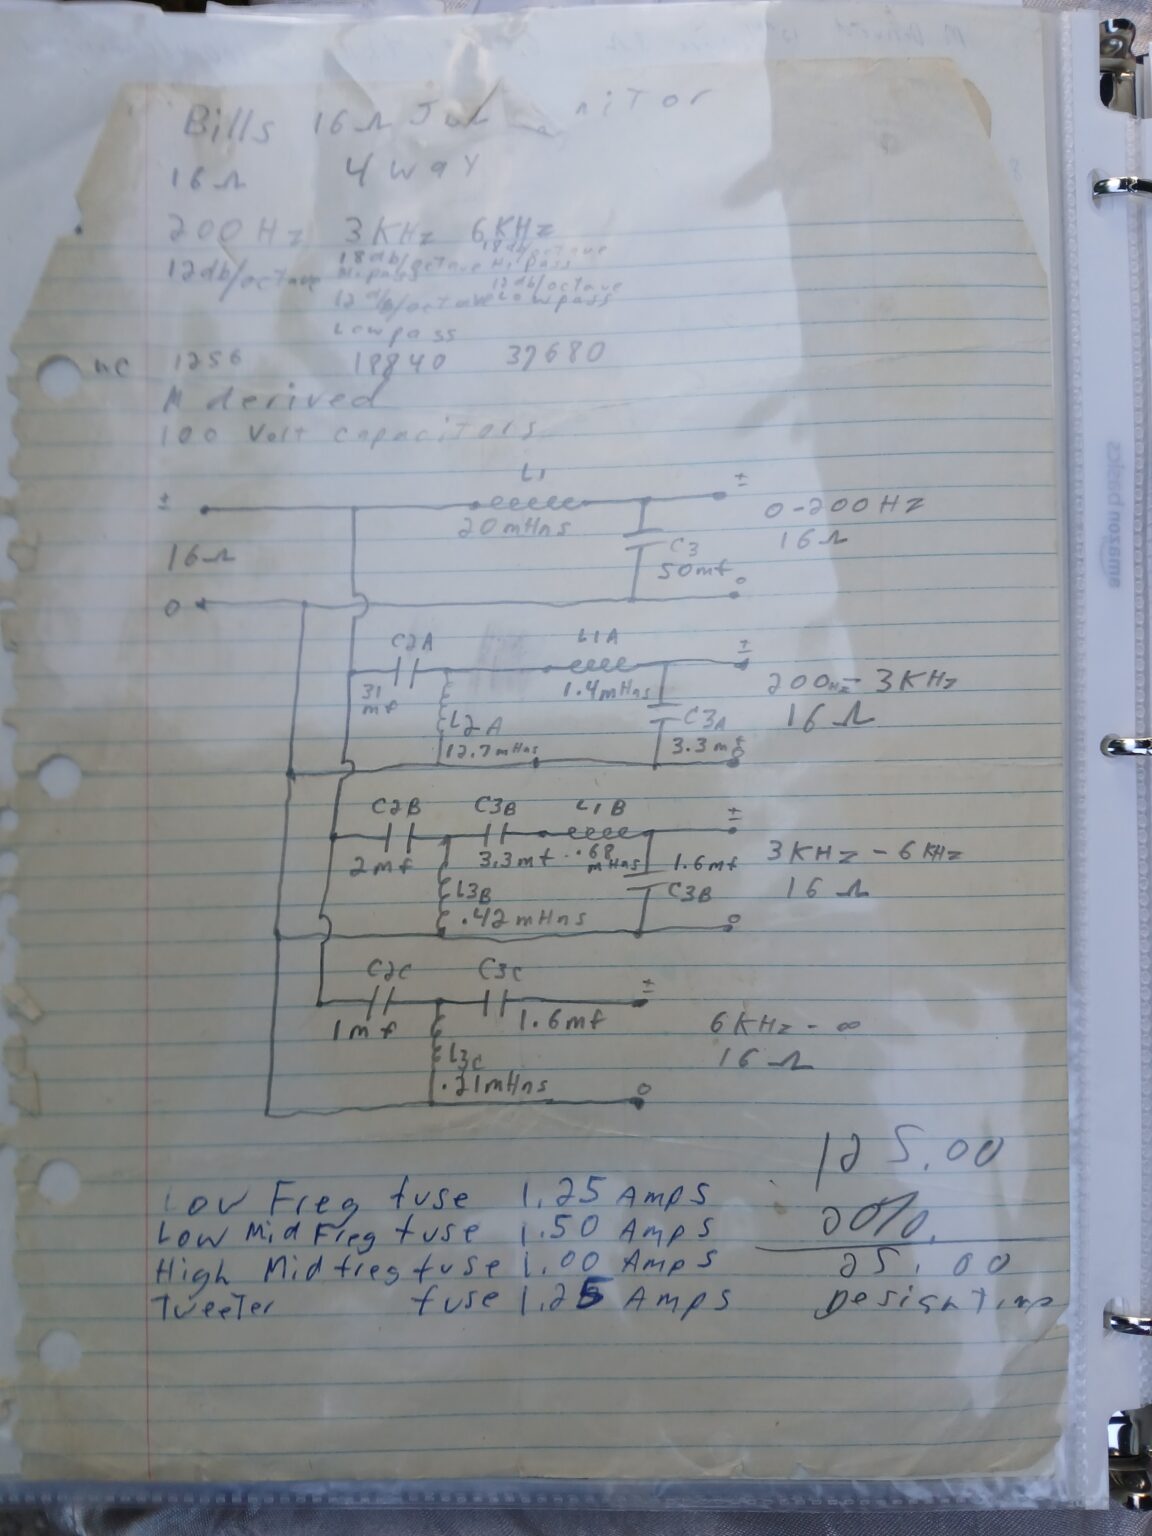 Bills 16Ω
16Ω 4 way
200 Hz 3 KHz 6 KHz
12db/octave 18db/octave Hipass 18db/octave Hipass
12db/octave Lowpass 12db/octave Lowpass
wc 1256 18840 37680
M derived
100 Volt capacitors
L1
± 20mHns ± 0-200Hz
16Ω C3 50mf 16Ω
0 0
C2A L1A ±
31 mf 1.4mHns 200Hz- 3KHz
L2A C3A 16Ω
12.7mHns 3.3mf 0
C2B C3B L1B ±
2mf 3.3mf .68 mHns 1.6mf 3KHz - 6KHz
L3B C3B 16Ω
.42mHns 0
C2C C3C ±
1mf 1.6mf 6KHz - ∞
L3C 16Ω
.21mHns 0
125.00
Low Freq fuse 1.25 Amps
Low Mid Freq fuse 1.50 Amps 20%
High Mid freq fuse 1.00 Amps 25.00
Tweeter fuse 1.25 Amps Design
amazon basics